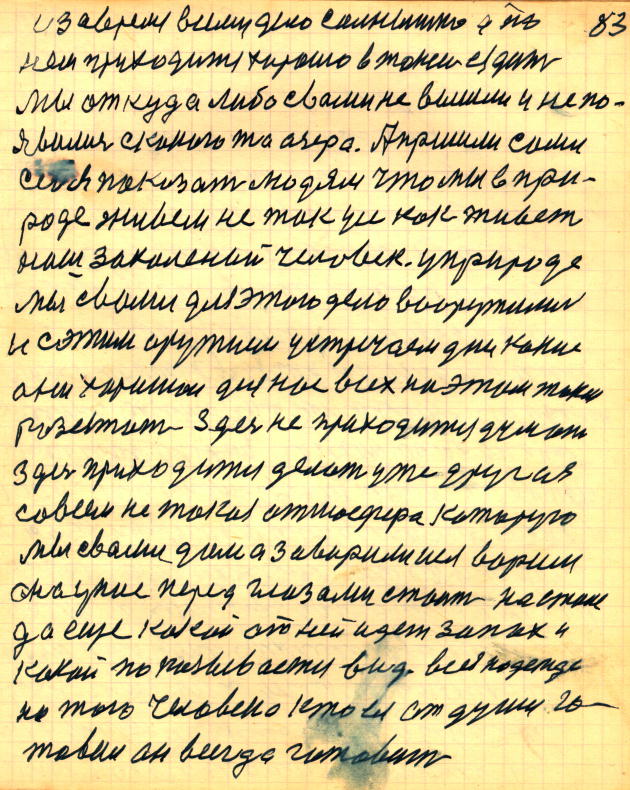 83
и за время всему дело солнышко а по
нем приходится хорошо в тоней сидит
мы откуда либо свами не вышли и непо-
явилис скакого та озера. А пришли сами
себя показат людям что мы в при-
роде живем не так уе как живет
наш закаленый человек. уприроде
мы свами для этого дело вооружилис
и сэтим оружием устричаем дни какие
они хоришои для нас всех на этом
Здес не приходится думат
здес приходится делат уже другая
совсем не такая атмосфера которую
мы свами дома заворилися ворим
она уние перед глазами стоит настоле
да еще какой от ней идет запах и
какой показывается вид. вся надежда
на того человека кто ея от души го-
товил он всегда готовит